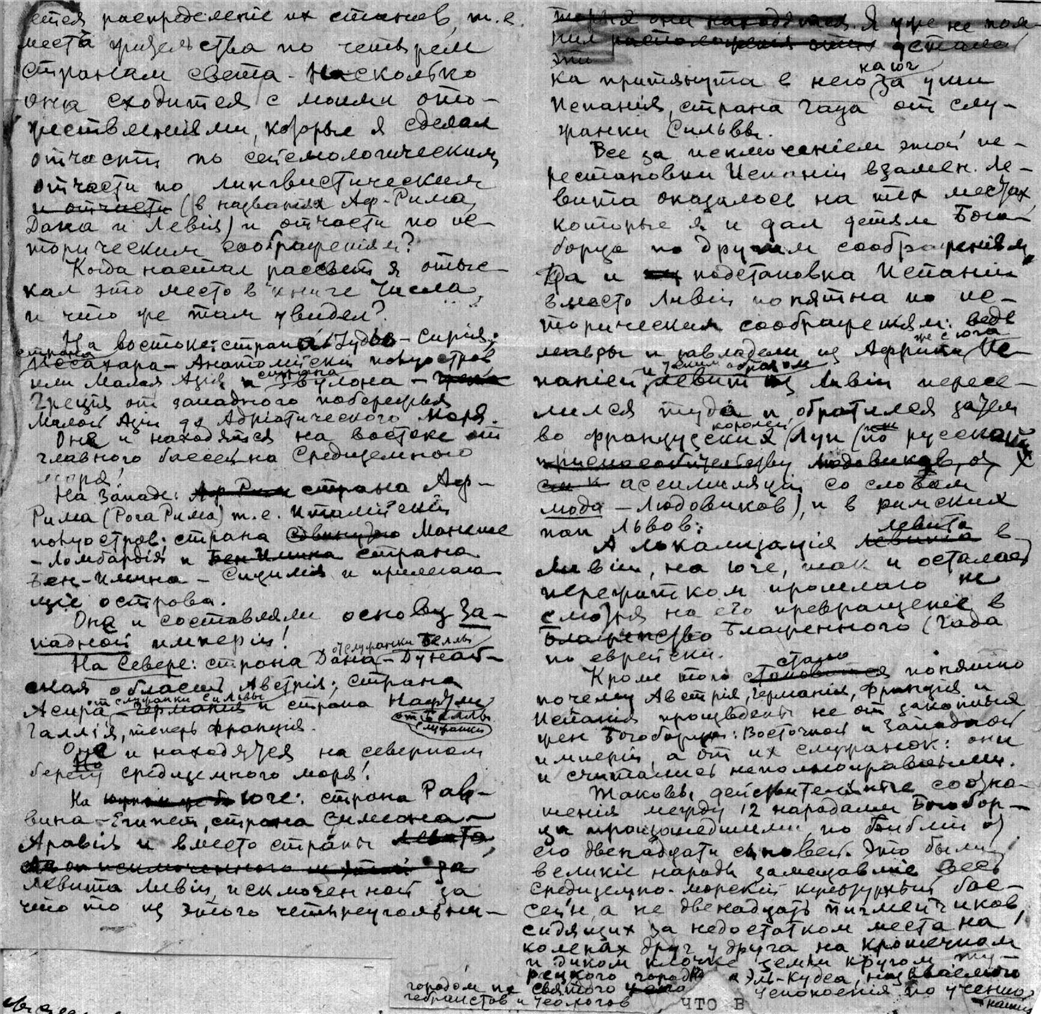 ется распределение их станов, т. е.
места жительства по четырем
странам света. Насколько
она сходится с моими ото-
жествлениями, которые я сделал
отчасти по сейсмологическим,
отчасти по лингвистическим
и отчасти (в названиях Аф-Рима,
Дана и Левия) и отчасти по ис-
торическим соображениям?
Когда настал рассвет я отыс-
кал это место в книге Числа
и что же там увидел?
На востоке: страна Иуды - Сирия;
страна Иссахара - Анатолийский полуостров
или Малая Азия и страна Звулона -
Греция от западного побережья
Малой Азии до Адриатического моря.
Оне и находятся на востоке от
главного бассейна Средиземного
моря!
На Западе: страна Аф-
Рима (Рога Рима) т. е. Италийский
полуостров; страна Манаше
- Ломбардия и страна
Бен-Имина - Сицилия и прилегаю-
щие острова.
Оне и составляли основу За-
падной империи!
от служанки Беллы
На Севере: страна Дана - Дунай-
ская область Австрия; страна
от служанки Сильвы
Асира - Германия и страна Нафтули
Галлия, теперь Франция. от Беллы служанки
Оне и находятся на северном
берегу Средиземного моря!
На Юге: страна Рав-
вина - Египет, страна Симеона -
Аравия и вместо страны
левита Ливии, исключенной за
что то из этого четыреугольни-
Я уже не пом-
нил
эти
на юг
ка притянута в него за уши
Испания, страна Гада от слу-
жанки Сильвы.
Все за исключением этой пе-
рестановки Испании взамен Ле-
вита оказалось на тех местах,
которые я и дал детям Бого-
борца по другим соображениям.
Да и подстановка Испании
вместо Ливии понятна по ис-
торическим соображениям: ведь
мавры и завладели из Африки же с юга Ис-
панией и таким образом левит из Ливии пересе-
лился туда и обратился затем
во французских королей Луи (по русски
ассимиляции со словом
мода - Людовиков), и в римских
пап Львов:
А локализация левита в
Ливии, на юге, так и осталась
пережитком прошлаго не
смотря на его превращение в
Блаженного (Гада
по еврейски.
Кроме того стало понятно
почему Австрия, Германия, Франция и
Испания произведены не от законных
жен Богоборца: Восточной и Западной
империй, а от их служанок: они
и считались неполноправными.
Таковы действительные соотно-
шения между 12 народами Богобор-
ца происшедшими, по Библии от
его двенадцати сыновей. Это были
великие народы замещавшие весь
средиземно-морской культурный бас-
сейн, а не двенадцать пигмейчиков
сидящих за недостатком места на
коленях друг у друга на крошечном
и диком клочке земли кругом ту-
рецкого городка Эль-Кудса, называемого
городом святого успокоения по учению наших
гебраистов и теологов
ЧТО В